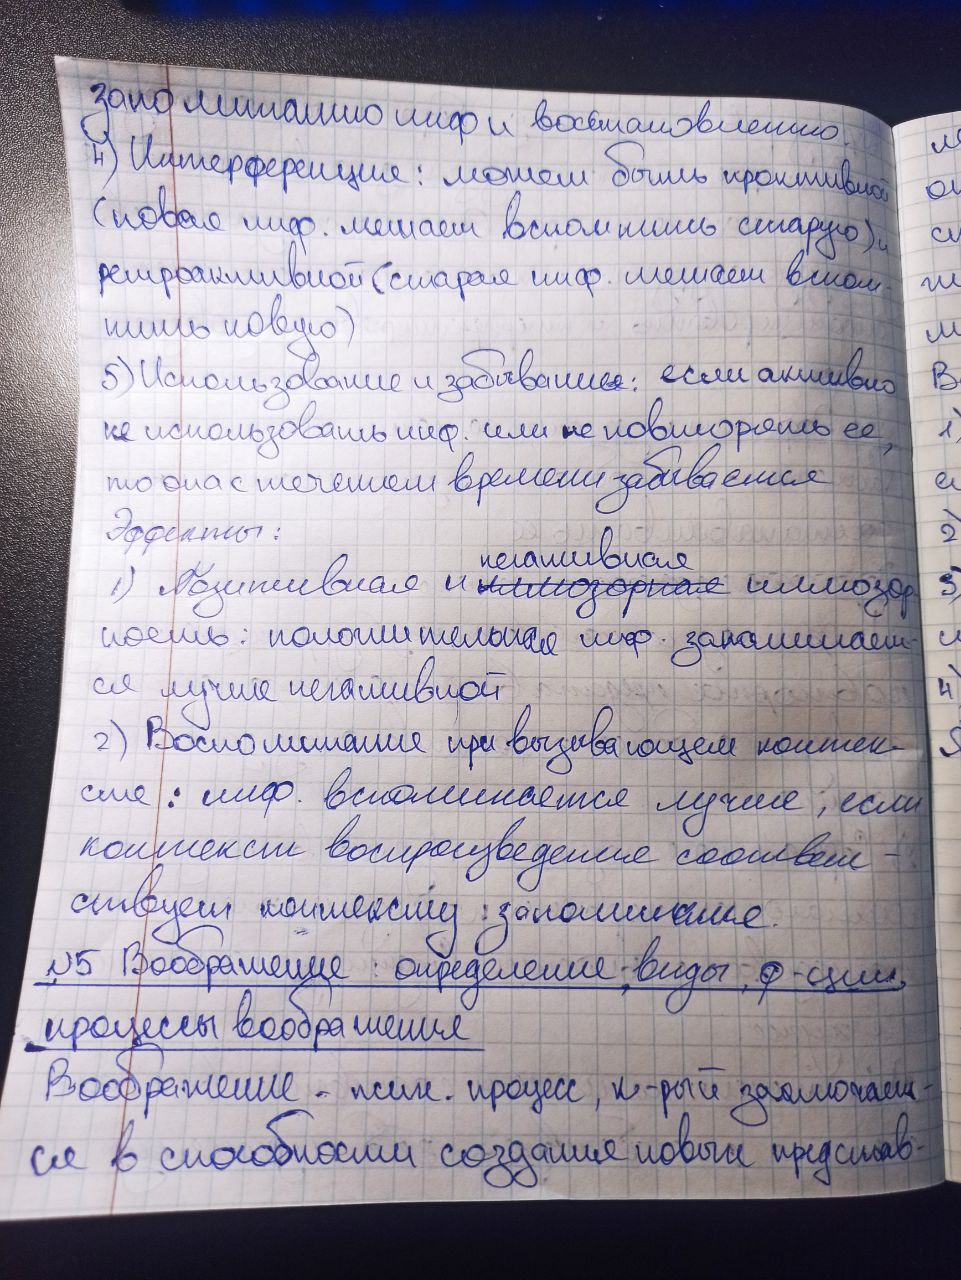 запоминанию инф и восстановлению.
4) Интерференция: может быть проктивной
(новая инф. мешает вспомнить старую) и
ретроактивной (старая инф. мешает вспом-
нить новую)
5) Использование и забывание: если активно
не использовать инф. или не повторять ее,
то она с течением времени забывается
Эффекты:
негативная
1) Позитивная и иллюзорная иллюзор-
ность: положительная инф. запоминает-
ся лучше негативной
2) Воспоминание при вызывающем контек-
сте: инф. вспоминается лучше, если
контекст воспроизведения соответ-
ствует контексту запоминания.
№5 Воображение: определение, виды, ф-ции,
процессы воображения
Воображение - псих. процесс, к-рый заключает-
ся в способности создания новых представ-
1)
2)
3)
4)